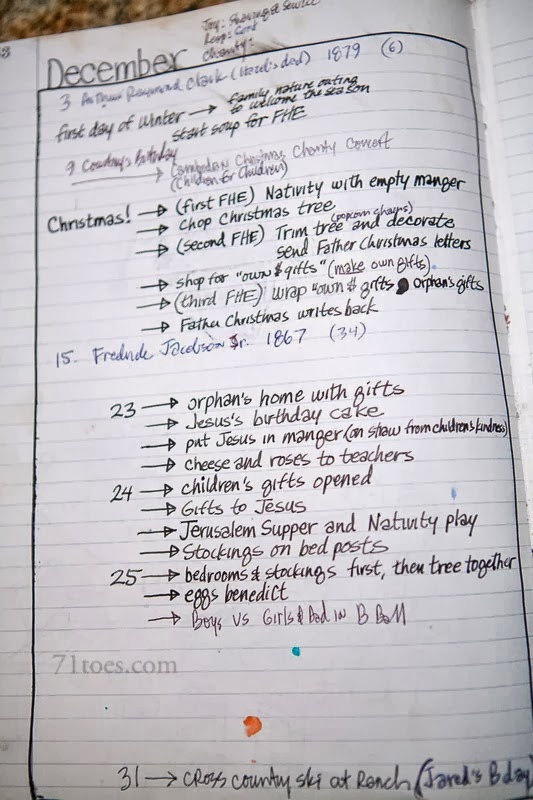 Joy: Sharing & Service
December
3 Arthur Raymond Clark (Hazel's dad) 1879 (6)
first day of winter → family nature outing
to welcome the season
start soup for FHE
9 Courtney's Birthday
→ Cambodian Christmas Charity Concert
(Children for Children)
Christmas! → (first FHE) Nativity with empty manger
→ Chop Christmas tree
→ (second FHE) Trim tree (popcorn & hams) and decorate
send Father Christmas letters
→ shop for "own $ gifts" (make own gifts)
→ (third FHE) Wrap "own $ gifts orphan's gifts
→ Father Christmas writes back
15. Jacobson Sr. 1867 (34)
23 → orphan's home with gifts
→ Jesus's birthday cake
→ put Jesus in manger (on straw from children's kindness)
→ cheese and roses to teachers
24 → children's gifts opened
→ Gifts to Jesus
→ Jerusalem Supper and Nativity play
→ Stockings on bed posts
25 → bedrooms & stockings first, then tree together
→ eggs benedict
→ Boys vs Girls & Dad in B Ball
71toes.com
31 → cross county ski at Ranch (Jared's B day